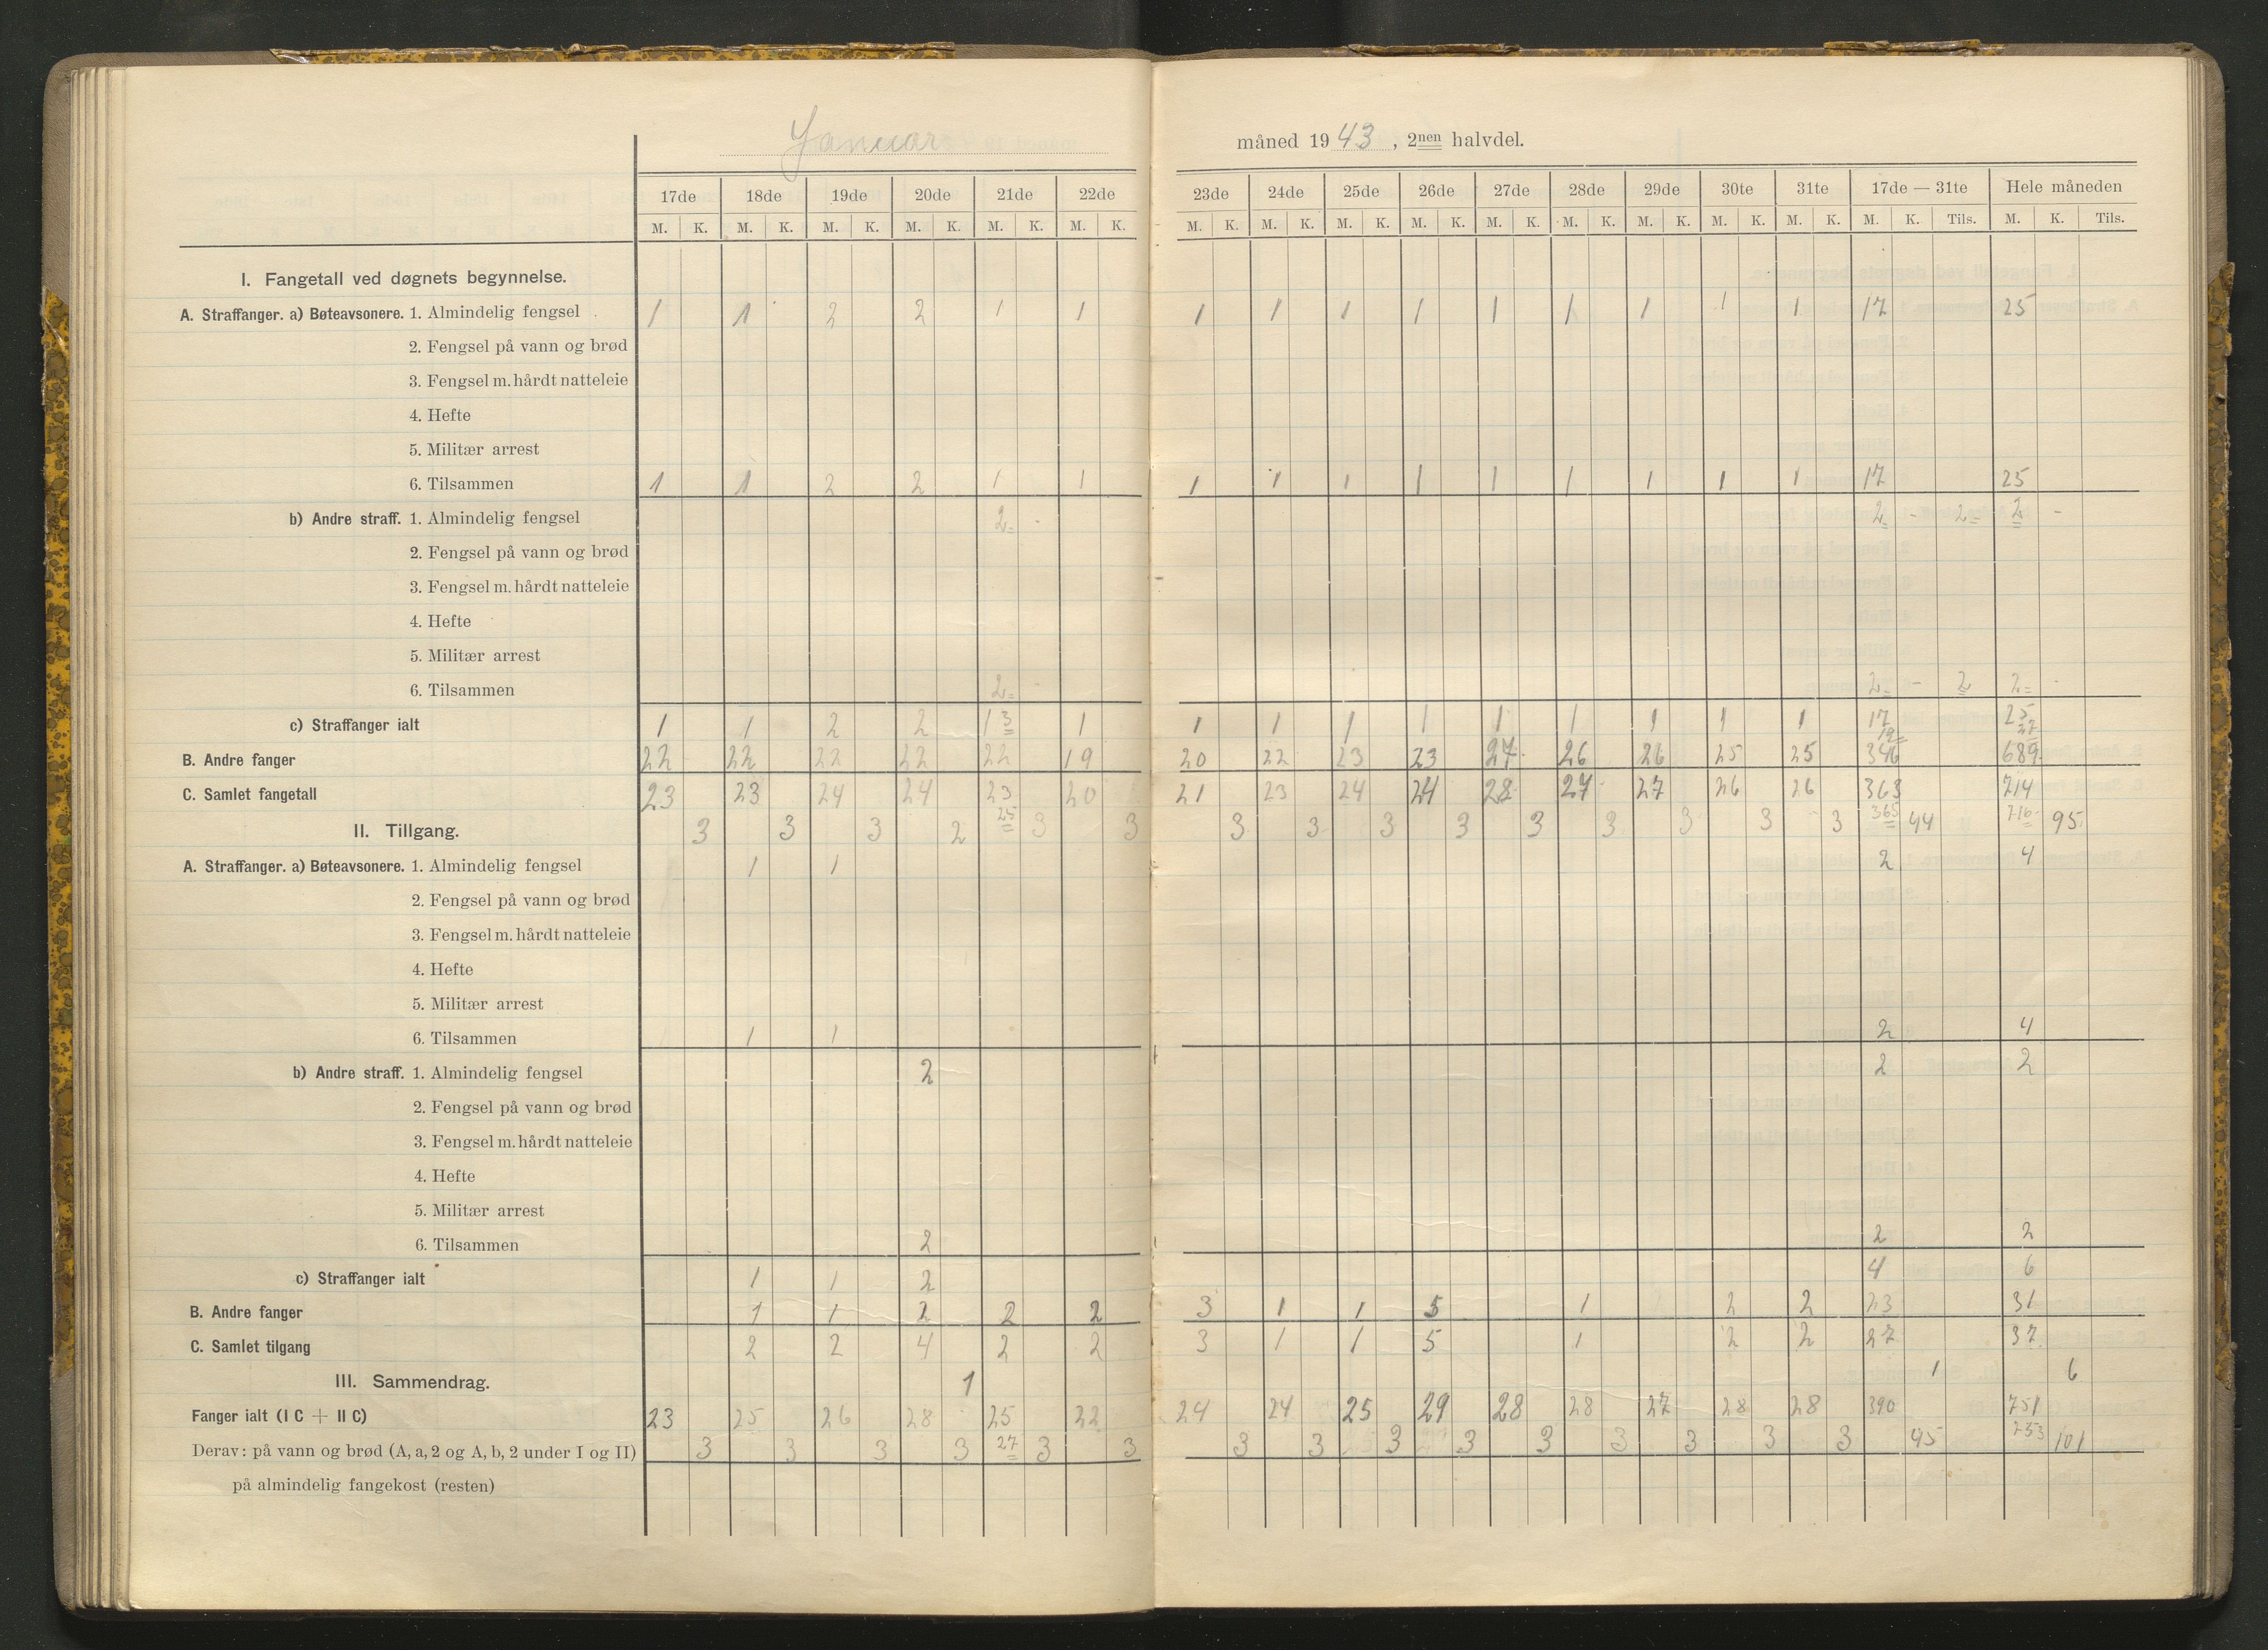 Januar måned 1943, 2nen halvdel.
17de 18de 19de 20de 21de 22de 23de 24de 25de 26de 27de 28de 29de 30te 31te 17de — 31te Hele måneden
M. K. M. K. M. K. M. K. M. K. M. K. M. K. M. K. M. K. M. K. M. K. M. K. M. K. M. K. M. K. M. K. Tils. M. K. Tils.
I. Fangetall ved døgnets begynnelse.
A. Straffanger. a) Bøteavsonere. 1. Almindelig fengsel 1 1 2 2 1 1 1 1 1 1 1 1 1 1 1 17 25
2. Fengsel på vann og brød
3. Fengsel m. hårdt natteleie
4. Hefte
5. Militær arrest
6. Tilsammen 1 1 2 2 1 1 1 1 1 1 1 1 1 1 1 17 25
b) Andre straff. 1. Almindelig fengsel 2 - 2 - 2 2 -
2. Fengsel på vann og brød
3. Fengsel m. hårdt natteleie
4. Hefte
5. Militær arrest
6. Tilsammen 2 - 2 - 2 2 -
c) Straffanger ialt 1 1 2 2 1 3 1 1 1 1 1 1 1 1 1 1 17 25
19 27
B. Andre fanger 22 22 22 22 22 19 20 22 23 23 27 26 26 25 25 346 689
C. Samlet fangetall 23 23 24 24 23 20 21 23 24 24 28 27 27 26 26 363 714
25 365 716
II. Tillgang. 3 3 3 2 3 3 3 3 3 3 3 3 3 3 3 44 95
A. Straffanger. a) Bøteavsonere. 1. Almindelig fengsel 1 1 2 4
2. Fengsel på vann og brød
3. Fengsel m. hårdt natteleie
4. Hefte
5. Militær arrest
6. Tilsammen 1 1 2 4
b) Andre straff. 1. Almindelig fengsel 2 2 2
2. Fengsel på vann og brød
3. Fengsel m. hårdt natteleie
4. Hefte
5. Militær arrest
6. Tilsammen 2 2 2
c) Straffanger ialt 1 1 2 4 6
B. Andre fanger 1 1 2 2 2 3 1 1 5 1 2 2 23 31
C. Samlet tilgang 2 2 4 2 2 3 1 1 5 1 2 2 27 37
III. Sammendrag. 1 1 6
Fanger ialt (I C + II C) 23 25 26 28 25 22 24 24 25 29 28 28 27 28 28 390 751
27 753
Derav: på vann og brød (A, a, 2 og A, b, 2 under I og II) 3 3 3 3 3 3 3 3 3 3 3 3 3 3 3 45 101
på almindelig fangekost (resten)